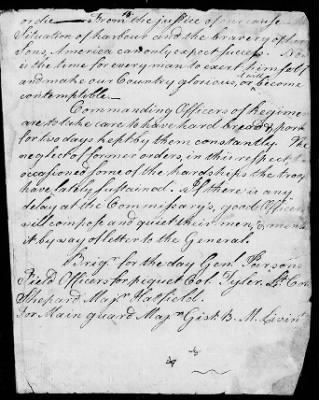 or die — From the justice of our cause
Situation of harbour and the bravery of her
Sons, America can only expect success. No
is the time for every man to exert himself
and make our Country glorious, or it will become
contemptable.—
Commanding Officers of Regimen
are to take care to have hard bread & pork
for two days kept by them constantly. The
neglect of former orders, in this respect
occasioned some of the hardships the troo
have lately sustained. If there is any
delay at the Commissarys, good Officer
will compose and quiet their men, &
it by way of letter to the General.
Brigr. for the day Genl. Parsons
Field Officers for piquet Col. Tyler. Lt. Col
Shepard Majr. Hatfield.
For Main guard Majr. Gist. B. M. Livin